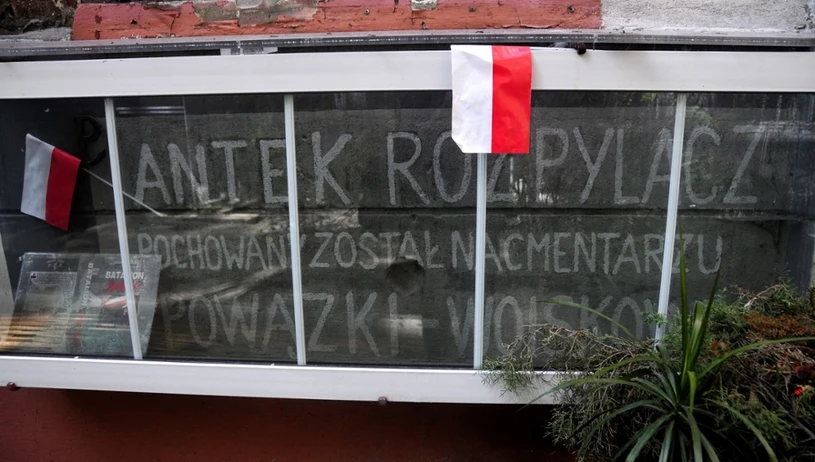 ANTEK ROZPYLACZ
POCHOWANY ZOSTAŁ NA CMENTARZU
POWĄZKI - WOJSKOWE
BATALION